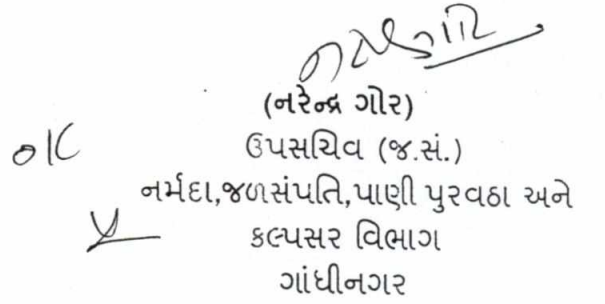 (નરેન્દ્ર ગોર)
ઉપસચિવ (જ.સં.)
નર્મદા,જળસંપતિ,પાણી પુરવઠા અને
કલ્પસર વિભાગ
ગાંધીનગર